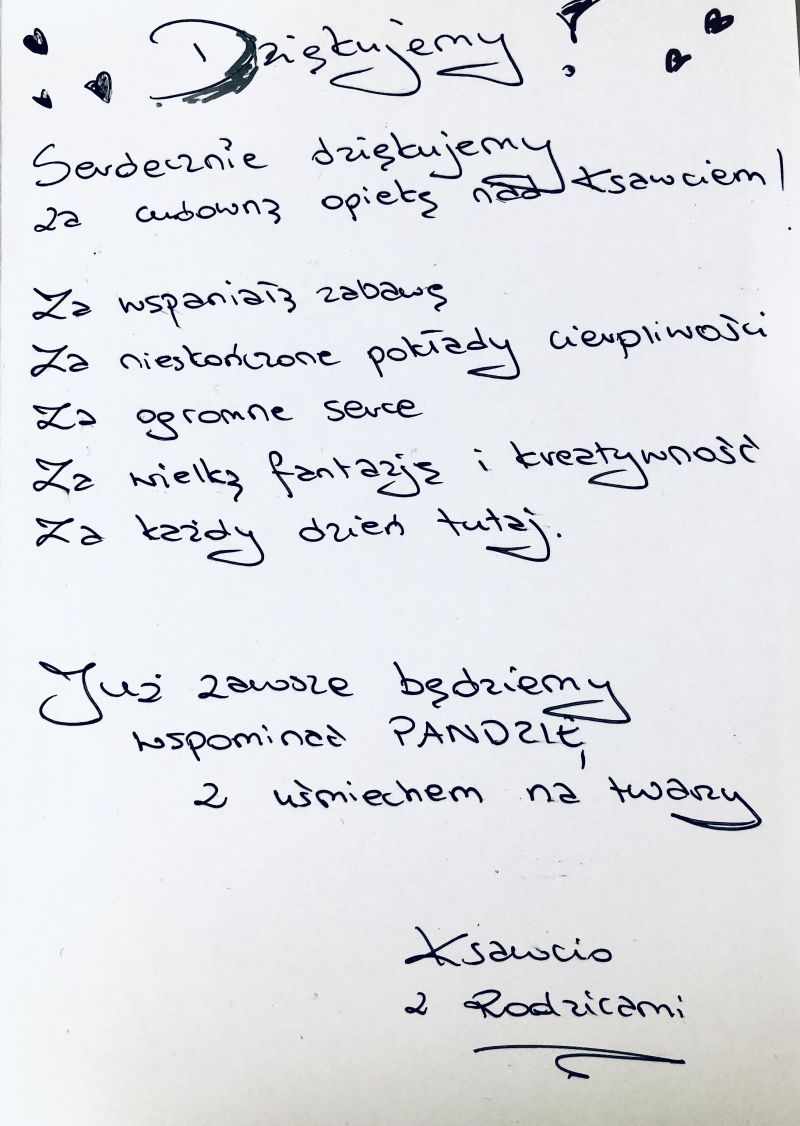 Dziękujemy!
Serdecznie dziękujemy
za cudowną opiekę nad Ksawciem!
Za wspaniałą zabawę
Za nieskończone pokłady cierpliwości
Za ogromne serce
Za wielką fantazję i kreatywność
Za każdy dzień tutaj.
Już zawsze będziemy
wspominać PANDZIĘ
z uśmiechem na twarzy
Ksawcio
z Rodzicami